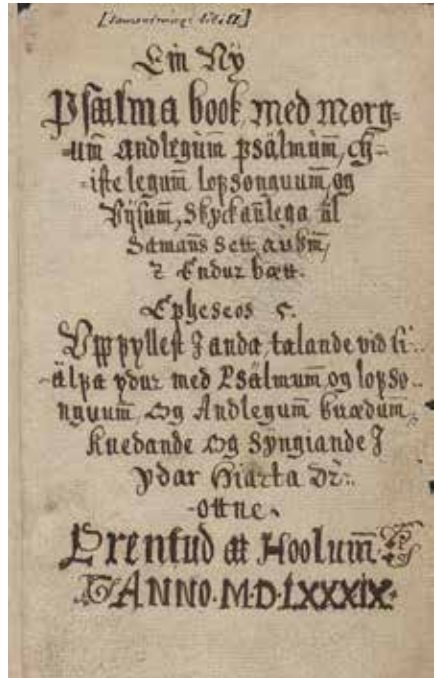 Ein Ný
Psalma book, med morg=
=um̅ andlegùm̅ psälmùm̅, ch=
=istelegum̅ lofsonguum̅, og
Vijsum, skyckan̅lega til
Saman̅s sett, aukin̅,
ꝛ Endur bætt.
Epheseos 5.
Vppfyllest J anda, talande vid si..
=älfa ydur med Psälmum̅ og lofso=
nguum̅, Og Andlegum̅ kuædum̅,
kuedande Og Syngiande J
ydar Hiarta Dr..
-ottne.
Prentud at Hoolum̅.
ANNO. M.D.LXXXIX.